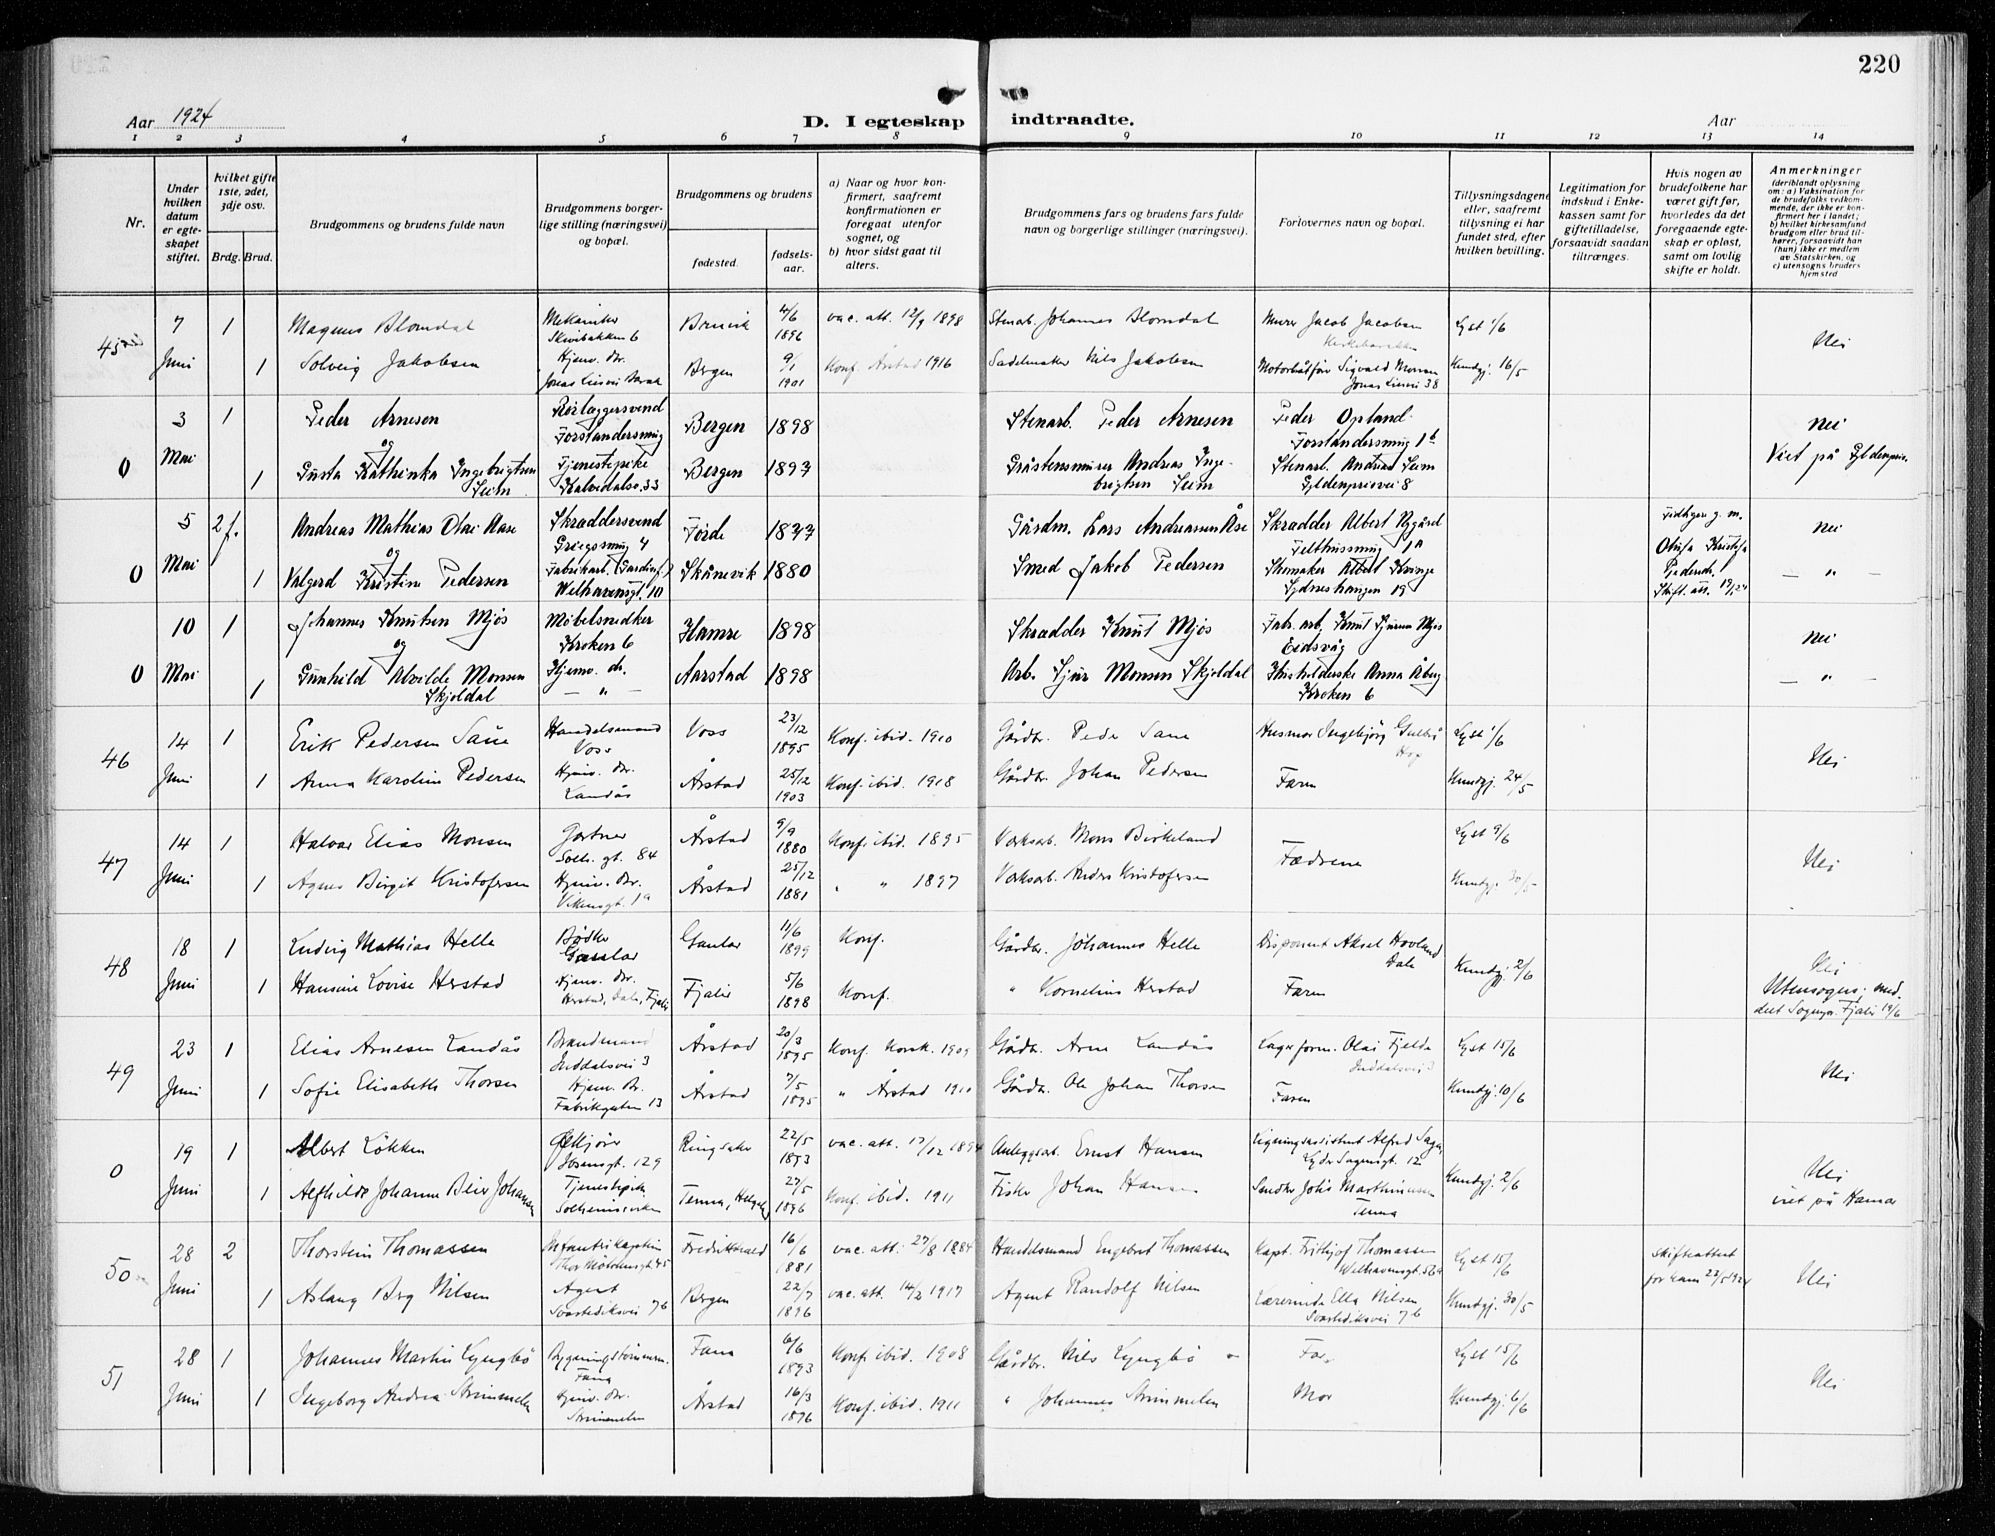 220
Aar 1924
D. I egteskap indtraadte.
Aar
1 2 3 4 5 6 7 8 9 10 11 12 13 14
Nr.
Under hvilken datum er egteskapet stiftet.
hvilket gifte 1ste, 2det, 3dje osv.
Brdg. Brud.
Brudgommens og brudens fulde navn
Brudgommens borgerlige stilling (næringsvei) og bopæl.
Brudgommens og brudens
fødested.
fødselsaar.
a) Naar og hvor konfirmert, saafremt konfirmationen er foregaat utenfor sognet, og
b) hvor sidst gaat til alters.
Brudgommens fars og brudens fars fulde navn og borgerlige stillinger (næringsvei).
Forlovernes navn og bopæl.
Tillysningsdagene eller, saafremt tillysning ei har fundet sted, efter hvilken bevilling.
Legitimation for indskud i Enkekassen samt for giftetilladelse, forsaavidt saadan tiltrænges.
Hvis nogen av brudefolkene har været gift før, hvorledes da det foregaaende egteskap er opløst, samt om lovlig skifte er holdt.
Anmerkninger
(deriblandt oplysning om: a) Vaksination for de brudefolks vedkommende, der ikke er konfirmert her i landet; b) hvilket kirkesamfund brudgom eller brud tilhører, forsaavidt han (hun) ikke er medlem av Statskirken, og c) utensogns bruders hjemsted
45 7 1 Magnus Blomdal Mekaniker Skivebakken 6 Bruvik 4/6 1896 vac. att. 12/9 1898 Stenarb. Johannes Blomdal Murer Jacob Jacobsen Lyst 1/6 Nei
Juni 1 Solveig Jakobsen Hjemv. dr. Bergen 9/1 1901 Konf. Årstad 1916 Sadelmaker Nils Jakobsen Motorbåtfør Sigvald Monsen Jonas Liesvei 38 Kundgj. 16/5
0 3 1 Peder Arnesen Rørlæggersvend Forstandersmug Bergen 1898 Stenarb. Peder Arnesen Peder Opland Forstandersmug 1b Nei
Mai og
1 Gusta Kathinka Ingebrigtsen Seim Tjenestepike Kalvedalsv. 33 Bergen 1897 Gråstensmurer Andreas Ingebrigtsen Seim Stenarb. Andreas Seim Gyldenprisvei 8 Viet på Gyldenpris
0 5 2 f. Andreas Mathias Olai Aase Skræddersvend Griegssmug 4 Førde 1877 Gårdm. Lars Andreassen Åse Skrædder Albert Nygård Felthussmug 1A Tidligere g. m. Otilia Kristofa Pedersdr. Skift. att. Nei
Mai og
1 Valgerd Kristine Pedersen Fabrikarb. (Sardinf.) Welhavensgt. 10 Skånevik 1880 Smed Jakob Pedersen Skomaker Albert Kvinge Sydneshaugen 19 — " —
0 10 1 Johannes Knutsen Mjøs Møbelsnedker Kroken 6 Hamre 1898 Skrædder Knut Mjøs Fabr. arb. Knut Sjursen Mjøs Eidsvåg Nei
Mai og
1 Gunhild Alvilde Monsen Skjoldal Hjemv. dr. — " — Aarstad 1898 Arb. Sjur Monsen Skjoldal Husholderske Anna Åberg Kroken 6 — " —
46 14 1 Erik Pedersen Saue Handelsmand Voss Voss 23/12 1895 Konf. ibid. 1910 Gårdbr. Peder Saue Husmor Ingebjørg Gullbrå Hop Lyst 1/6 Nei
Juni 1 Anna Karoline Pedersen Hjemv. dr. Landås Årstad 25/12 1903 Konf. ibid. 1918 Gårdbr. Johan Pedersen Faren Kundgj. 24/5
47 14 1 Halvar Elias Monsen Gartner Solh. gt. 84 Årstad 9/9 1880 Konf. ibid. 1895 Verksarb. Mons Birkeland Fædrene Lyst 9/6 Nei
Juni 1 Agnes Birgit Kristofersen Hjemv. dr. Vikensgt. 1a Årstad 25/12 1881 " " 1897 Verksarb. Anders Kristofersen Kundgj. 30/5
48 18 1 Ludvig Mathias Helle Bødker Gaular Gaular 11/6 1899 Konf. Gårdbr. Johannes Helle Disponent Aksel Hovland Dale Kundgj. 2/6 Nei
Juni 1 Hansine Lovise Herstad Hjemv. dr. Herstad, Dale, Fjaler Fjaler 5/6 1898 Konf. " Kornelius Herstad Faren Utensogns; med. delt Sognepr. Fjaler 19/6
49 23 1 Elias Arnesen Landås Brandmand Inddalsvei 3 Årstad 20/3 1895 Konf. Korsk. 1909 Gårdbr. Arne Landås Lagerform. Olai Fjelde Inddalsvei 3 Lyst 15/6 Nei
Juni 1 Sofie Elisabeth Thorsen Hjemv. dr. Fabrikgaten 13 Årstad 7/5 1895 " Årstad 1910 Gårdbr. Ole Johan Thorsen Faren Kundgj. 10/6
0 19 1 Albert Løkken Ibsensgt. 129 Ringsaker 22/5 1893 vac. att. 17/12 1894 Anleggsarb. Ernst Hansen Ligningsassistent Alfred Sagen Lyder Sagensgt. 12 Kundgj. 2/6 Nei
Juni 1 Alfhilde Johanne Beier Johansen Tjenestepike Solheimsviken Tenna, Helgel. 27/5 1896 Konf. ibid. 1911 Fisker Johan Hansen Snedker Johs Marthinussen Tenna viet på Hamar
50 28 2 Thorstein Thomassen Infanterikaptein Fredrikshald 16/6 1881 vac. att. 27/8 1884 Handelsmand Engebret Thomassen Kapt. Frithjof Thomassen Welhavensgt. 56a Lyst 15/6 Skifteattest for ham Nei
Juni 1 Aslaug Berg Nilsen Agent Svartediksvei 76 Bergen 22/7 1896 vac. att. 14/2 1917 Agent Randolf Nilsen Lærerinde Ella Nilsen Svartediksvei 76 Kundgj. 30/5
51 28 1 Johannes Martin Lyngbø Bygningstømmerm. Fana Fana 6/6 1893 Konf. ibid. 1908 Gårdbr. Nils Lyngbø Far Lyst 15/6 Nei
Juni 1 Ingeborg Andrea Strimmelen Hjemv. dr. Strimmelen Årstad 16/3 1896 Konf. ibid. 1911 " Johannes Strimmelen Mor Kundgj. 6/6